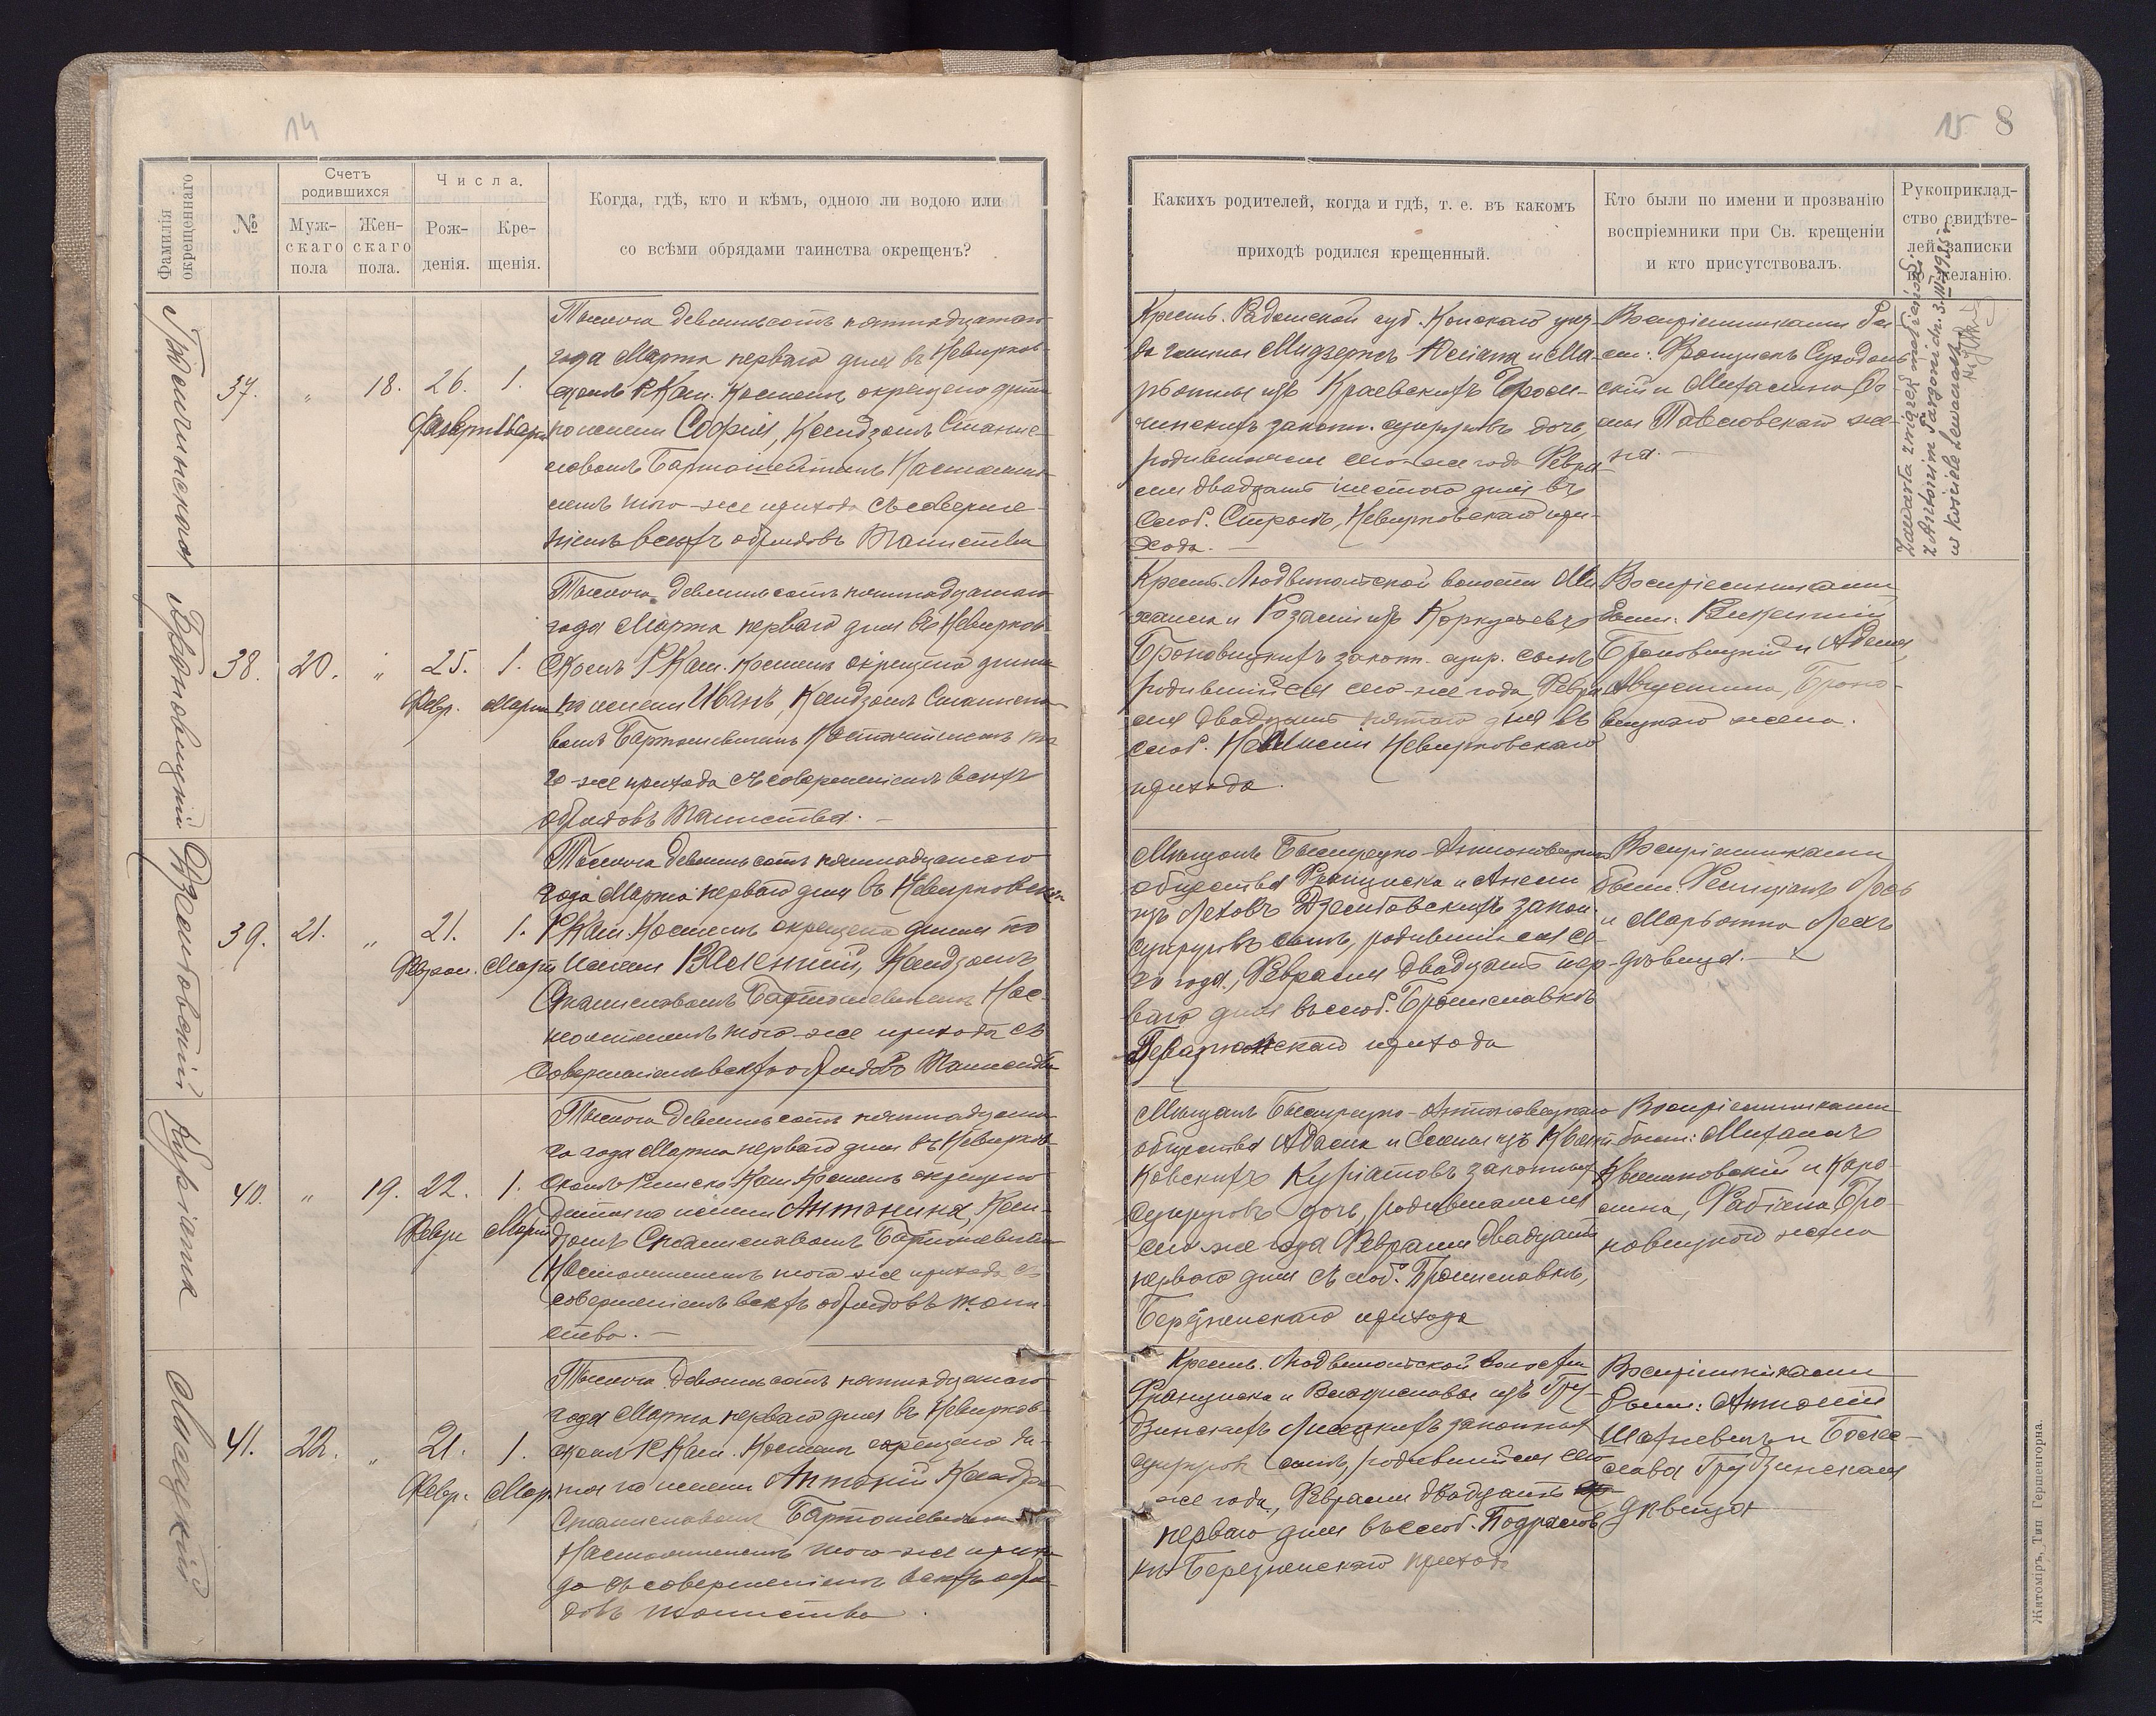 14
15 8
Фамилія окрещеннаго
№
Счетъ родившихся
Муж-
скаго
пола
Жен-
скаго
пола.
Числа.
Рож-
денія.
Кре-
щенія.
Когда, гдѣ, кто и кѣмъ, одною ли водою или
со всѣми обрядами таинства окрещенъ?
Какихъ родителей, когда и гдѣ, т. е. въ какомъ
приходѣ родился крещенный.
Кто были по имени и прозванію
воспріемники при Св. крещеніи
и кто присутствовалъ.
Рукоприклад-
ство свидѣте-
лей записки
по желанію.
37.
"
18.
26.
1.
Тысяча девятьсотъ пятнадцатаго
года Марта перваго дня въ Невирков-
скомъ Р. Кат. Костелѣ окрещено дитя
по имени Софія, Ксендзомъ Станис-
лавомъ Бартошевичемъ Настояте-
лемъ того-же прихода съ соверше-
ніемъ всѣхъ обрядовъ Таинства
Крест. Радомской губ. Конскаго уѣз-
да гмины Мидзержъ Юліана и Ма-
ріанны изъ Краевскихъ
законн. супруговъ дочь,
родившаяся сего-же года Февра-
ля двадцать шестого дня въ
Невирковскаго при-
хода. —
Воспріемниками бы-
ли: Францискъ Суходоль-
скій и Михалина
Павловскаго же-
на. —
Zawarła związek małżeński
z Antonim Pargonidn. 3.III.1935 r.
w kościele Lewaczach
Броновицкій
38.
20.
"
25.
Февр.
1.
Марта
Тысяча девятьсотъ пятнадцатаго
года Марта перваго дня въ Невирков-
скомъ Р. Кат. Костелѣ окрещено дитя
по имени Иванъ, Ксендзомъ Станисла-
вомъ Бартошевичемъ Настоятелемъ то-
го-же прихода съ совершеніемъ всѣхъ
обрядовъ Таинства. —
Крест. Людвипольской волости Ми-
хаила и Розаліи изъ
Броновицкихъ законн. супр. сынъ
родившійся сего-же года Февра-
ля двадцать пятого дня въ
Невирковскаго
прихода.
Воспріемниками
были: Викентій
Броновицкій и Адела,
Августина, Броно-
вицкаго жена.
Дзембовскій
39.
21.
"
21.
Феврал.
1.
Марта
Тысяча девятьсотъ пятнадцатаго
года Марта перваго дня въ Невирковском
Р. Кат. Костелѣ окрещено дитя по
имени Ксендзомъ
Станиславомъ Бартошевичемъ Нас-
тоятелемъ того-же прихода съ
совершеніемъ всѣхъ обрядовъ Таинства
Мѣщанъ
общества Франциска и Анели
изъ Леховъ Дзембовскихъ закон.
супруговъ сынъ, родившійся се-
го года, Февраля двадцать пер-
ваго дня въ слоб. Брониславкѣ
прихода
Воспріемниками
были: Фелиціанъ Лехъ
и Маріанна Лехъ
дѣвица. —
Курьята
40.
"
19.
22.
Февр
1.
Март
Тысяча девятьсотъ пятнадцата-
го года Марта перваго дня въ Невирков-
скомъ Римско Кат. Костелѣ окрещено
дитя по имени Антонина, Ксен-
дзомъ Станиславомъ Бартошевичемъ
Настоятелемъ того-же прихода съ
совершеніемъ всѣхъ обрядовъ таин-
ства. —
Мѣщанъ
общества Адама и
Курьятовъ законныхъ
супруговъ дочь, родившаяся
сего-же года Февраля двадцать
перваго дня въ слоб. Брониславкѣ,
Березненскаго прихода
Воспріемниками
были: Михаилъ
Квятковскій и Каро-
лина, Фабіана Бро-
новицкаго жена
Лисецкій
41.
22.
"
21.
Февр.
1.
Мар.
Тысяча девятьсотъ пятнадцатаго
года Марта перваго дня въ Невирков-
скомъ Р. Кат. Костелѣ окрещено ди-
тя по имени Антоній Ксендзомъ
Станиславомъ Бартошевичемъ
Настоятелемъ того-же прихо-
да съ совершеніемъ всѣхъ обря-
довъ таинства.
Крест. Людвипольской волости
Франциска и Владиславы изъ Гру-
дзинскихъ Лисецкихъ законныхъ
супругов сынъ, родившійся сего
же года, Февраля двадцать
перваго дня въ слоб.
Березненскаго прихода
Воспріемниками
были: Антоній
и Болес-
лава Грудзинская
дѣвица
Житомиръ, Тип Гершенгорна.